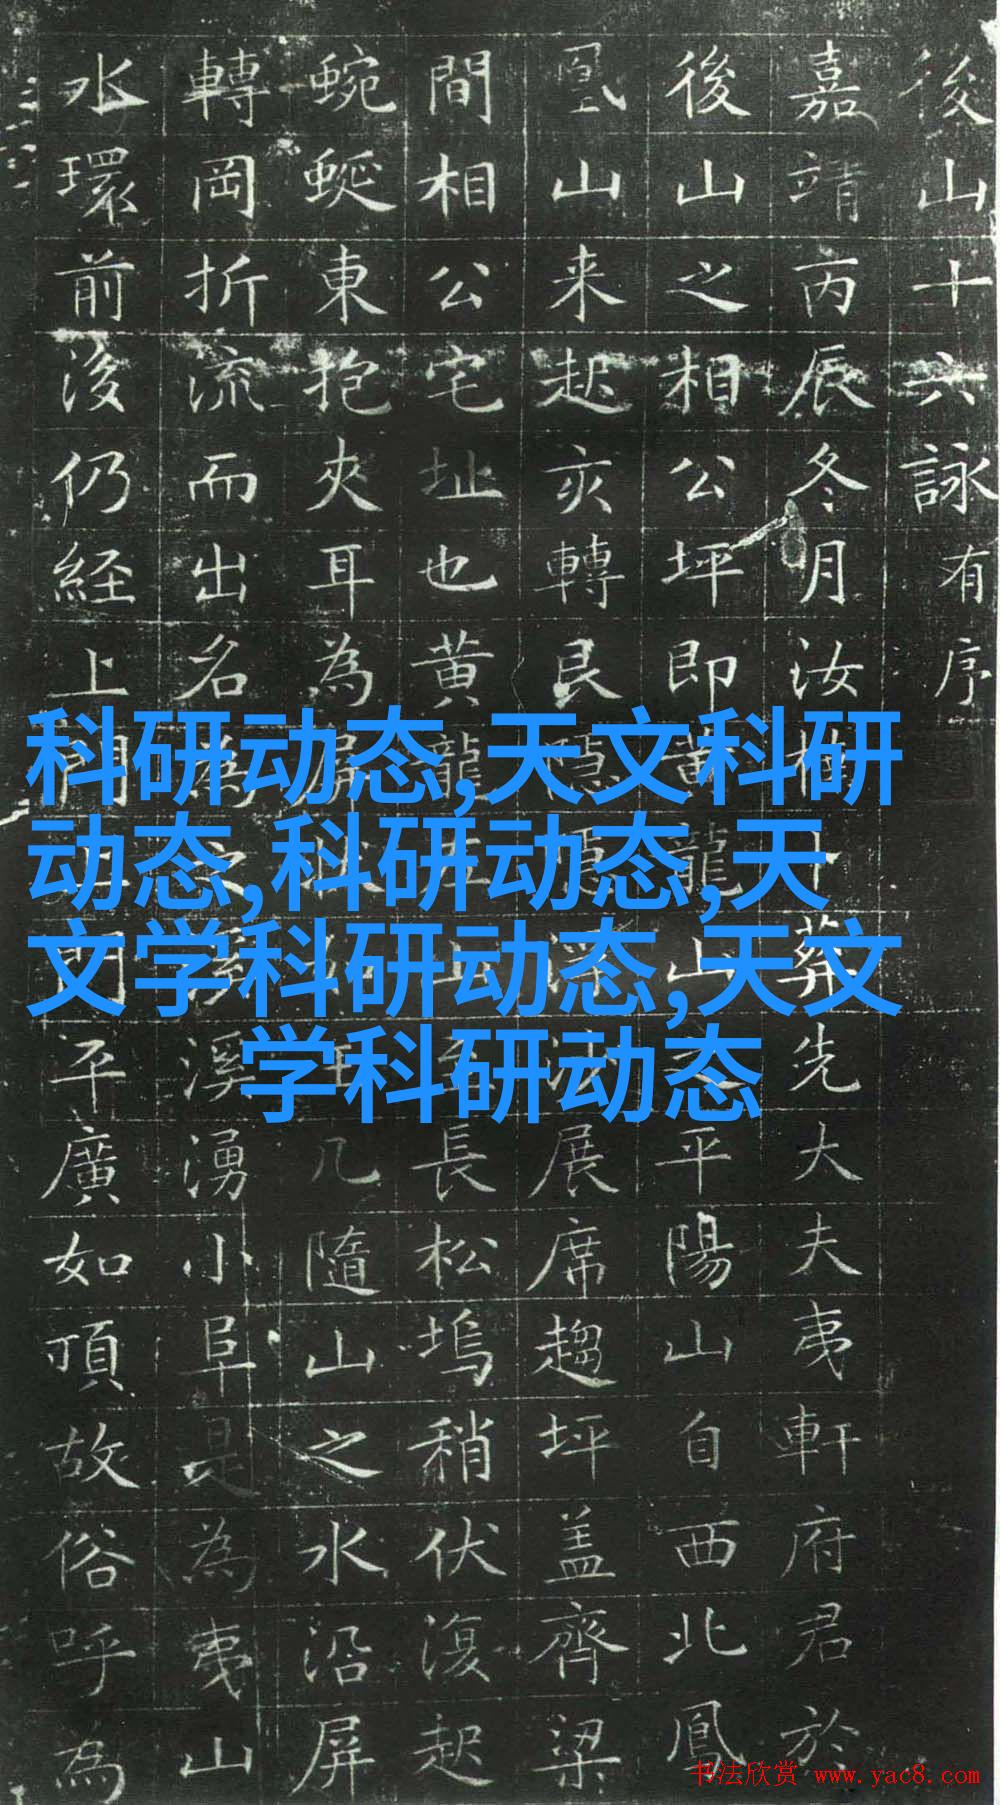 後山十六詠有序
嘉靖丙辰冬月汝葬先大夫夷軒府君於
後山之相公坪即黄龍山平陽山自西北鳳
凰山来起亥轉艮深展席趨坪盖齊梁
間相公宅址也黄龍山長松塢稍伏復起
蜿蜒東抱夾耳為屏几隨山之水沿屏
轉岡折流而出名為溪湧小阜是為夷山
水環前後仍經上門平廣如頂故俗呼為
科研动态,天文科研
动态,科研动态,天
文学科研动态,天文
学科研动态
书法欣赏 www.yac8.com